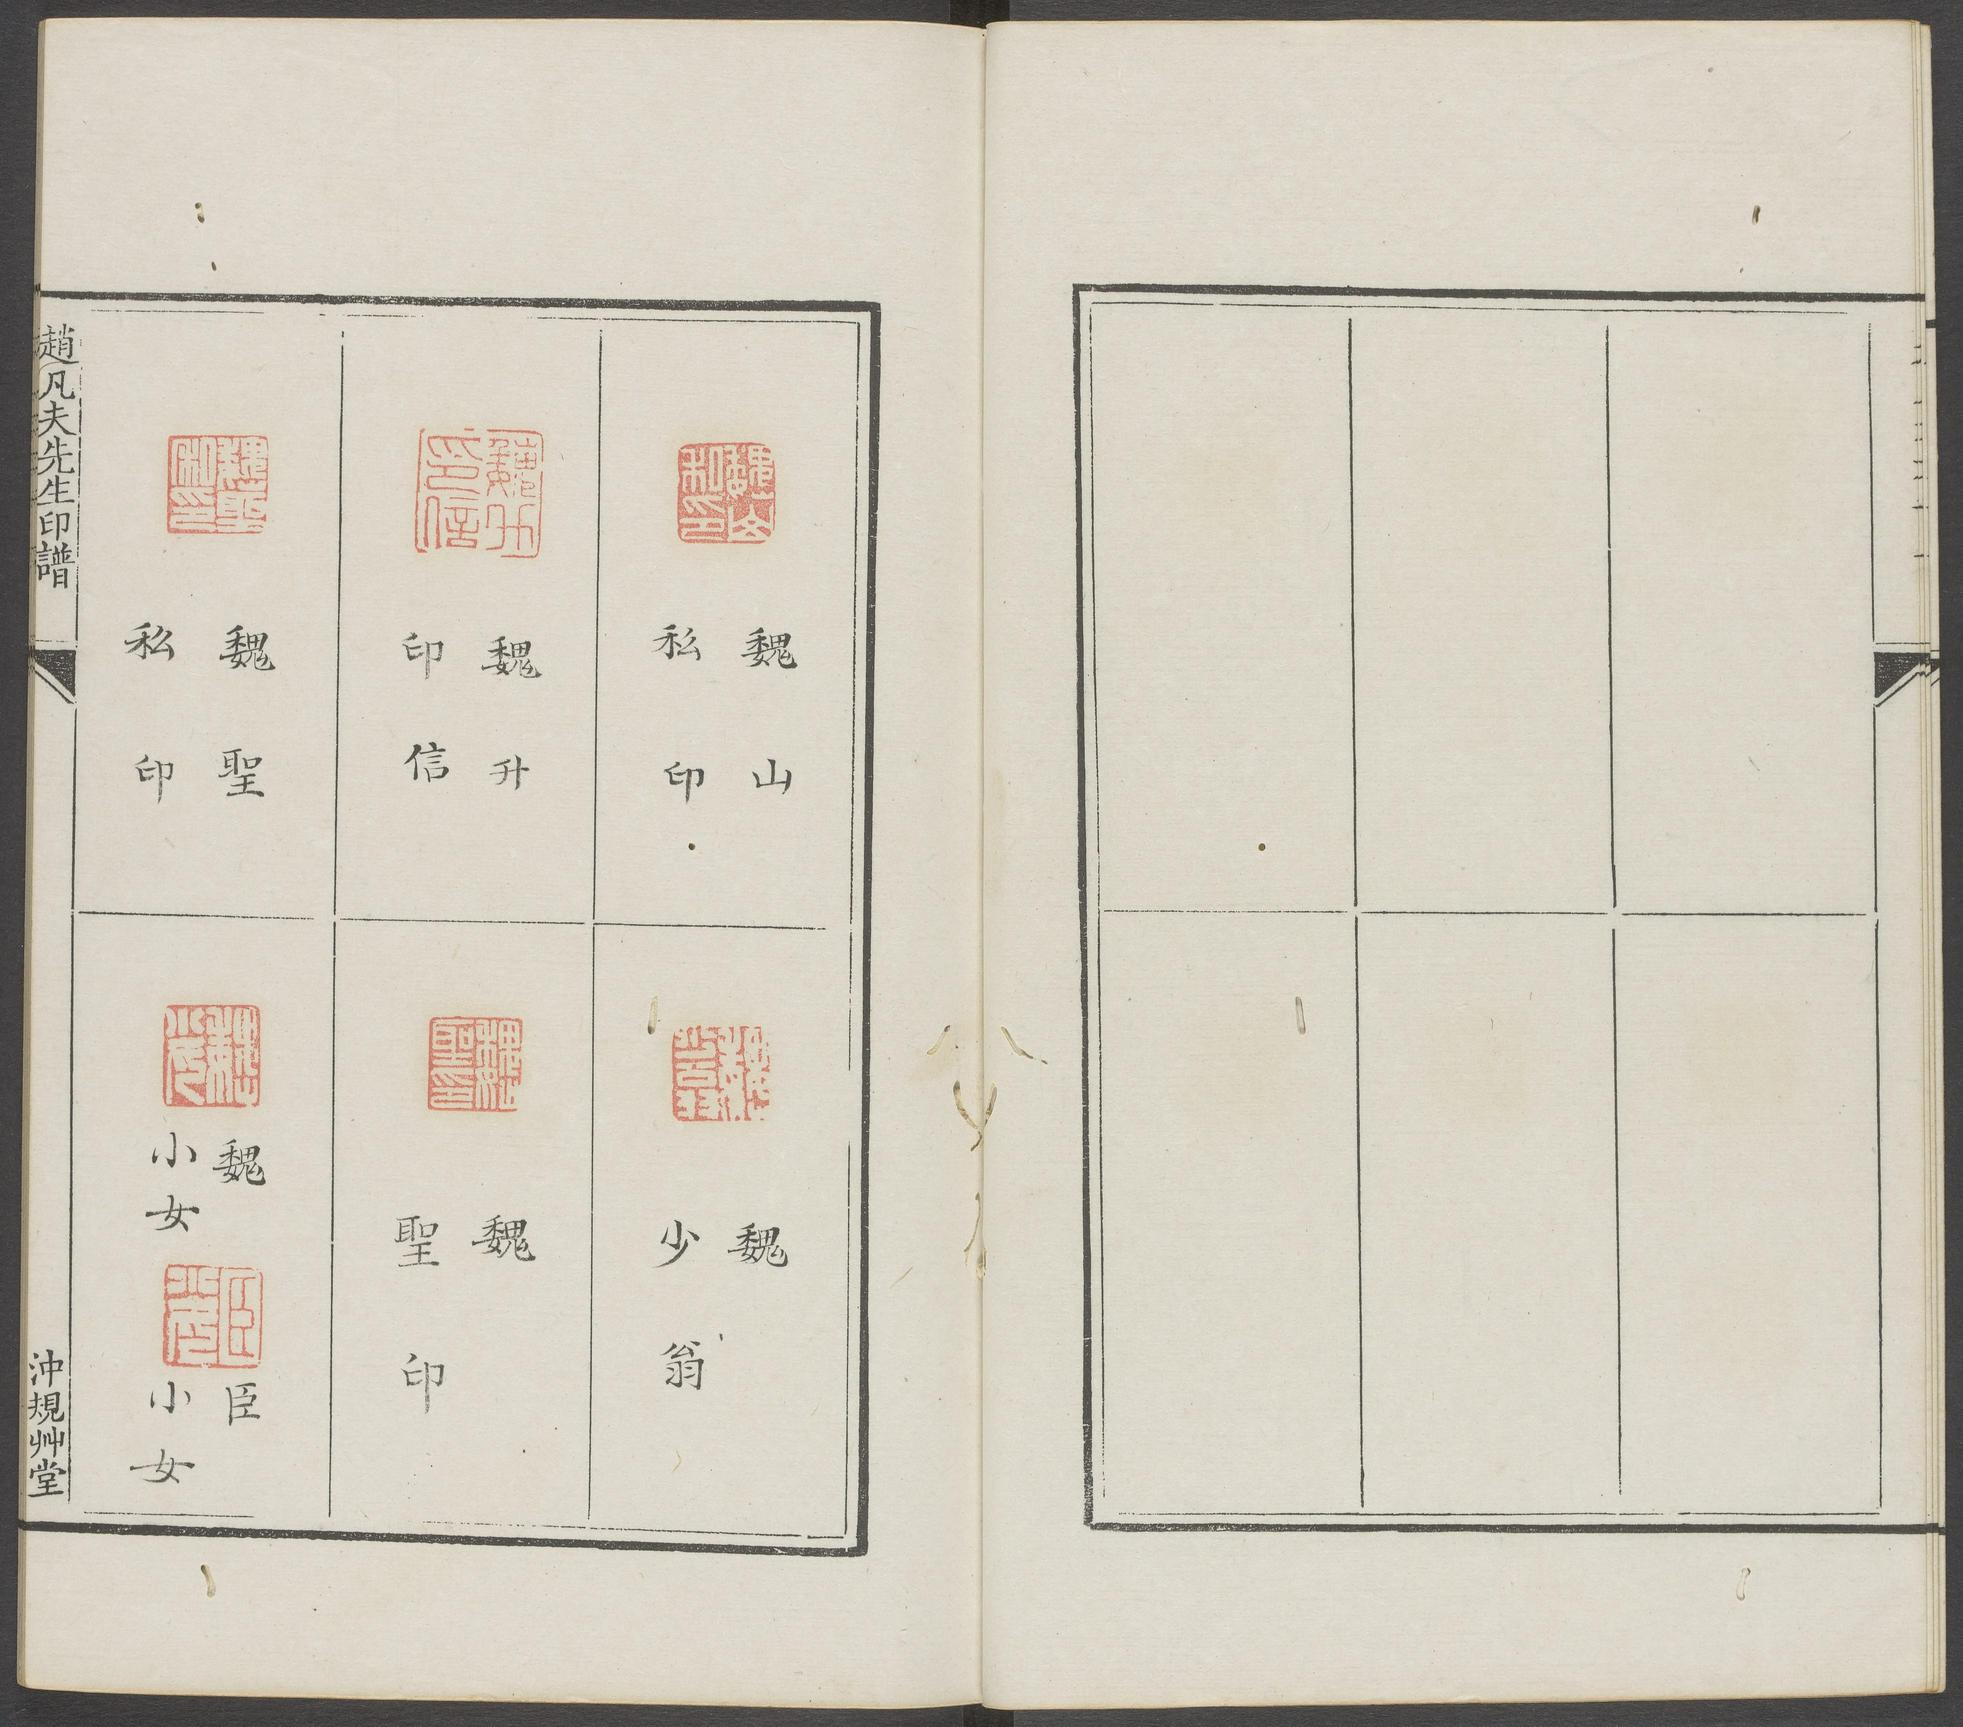 魏山
私印
魏少翁
魏升
印信
魏
聖印
魏聖
私印
魏
小女
臣
小女
趙凡夫先生印譜
沖規艸堂